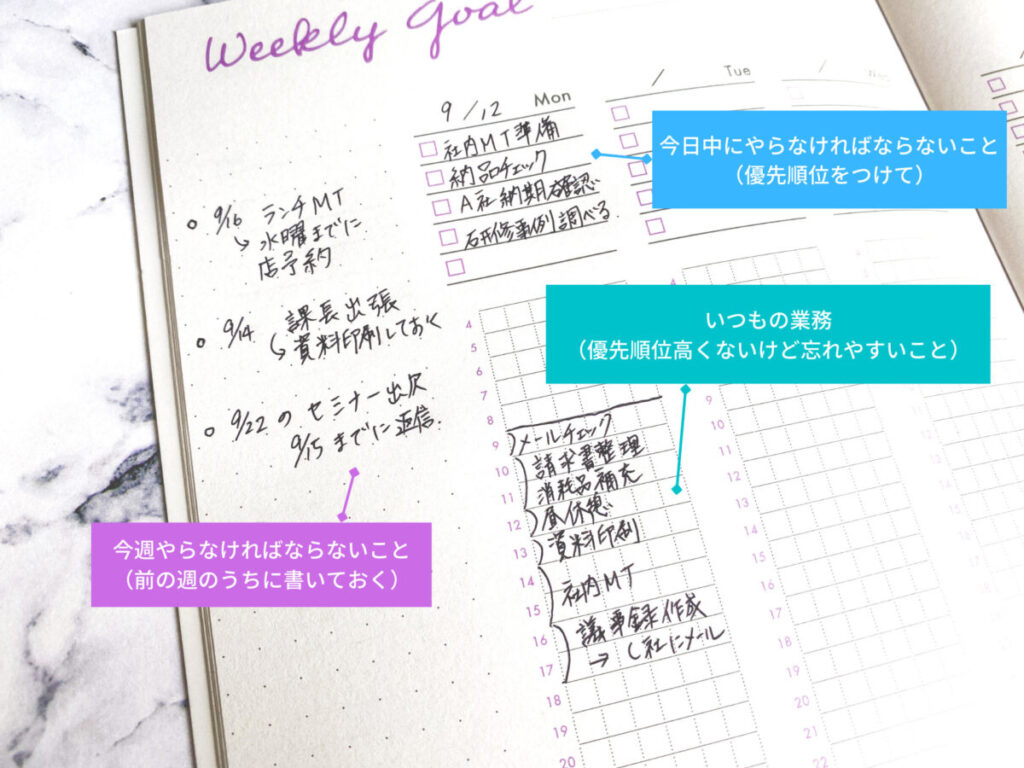 Weekly Goal
9/12 Mon
□ 社内MT準備
□ 納品チェック
□ A社納期確認
□ 研修事例調べる
/ Tue
/ Wed
今日中にやらなければならないこと
（優先順位をつけて）
○ 9/16 ランチMT
↳ 水曜までに
店予約
○ 9/14 課長出張
↳ 資料印刷しておく
○ 9/22のセミナー出欠
9/15までに返信
今週やらなければならないこと
（前の週のうちに書いておく）
いつもの業務
（優先順位高くないけど忘れやすいこと）
4
5
6
7
8
9 メールチェック
10 請求書整理
11 消耗品補充
12 昼休憩
13 資料印刷
14 社内MT
15
16 議事録作成
17 → C社にメール
18
19
20
4
9
10
11
12
13
14
15
16
17
18
19
20
21
22
20
22